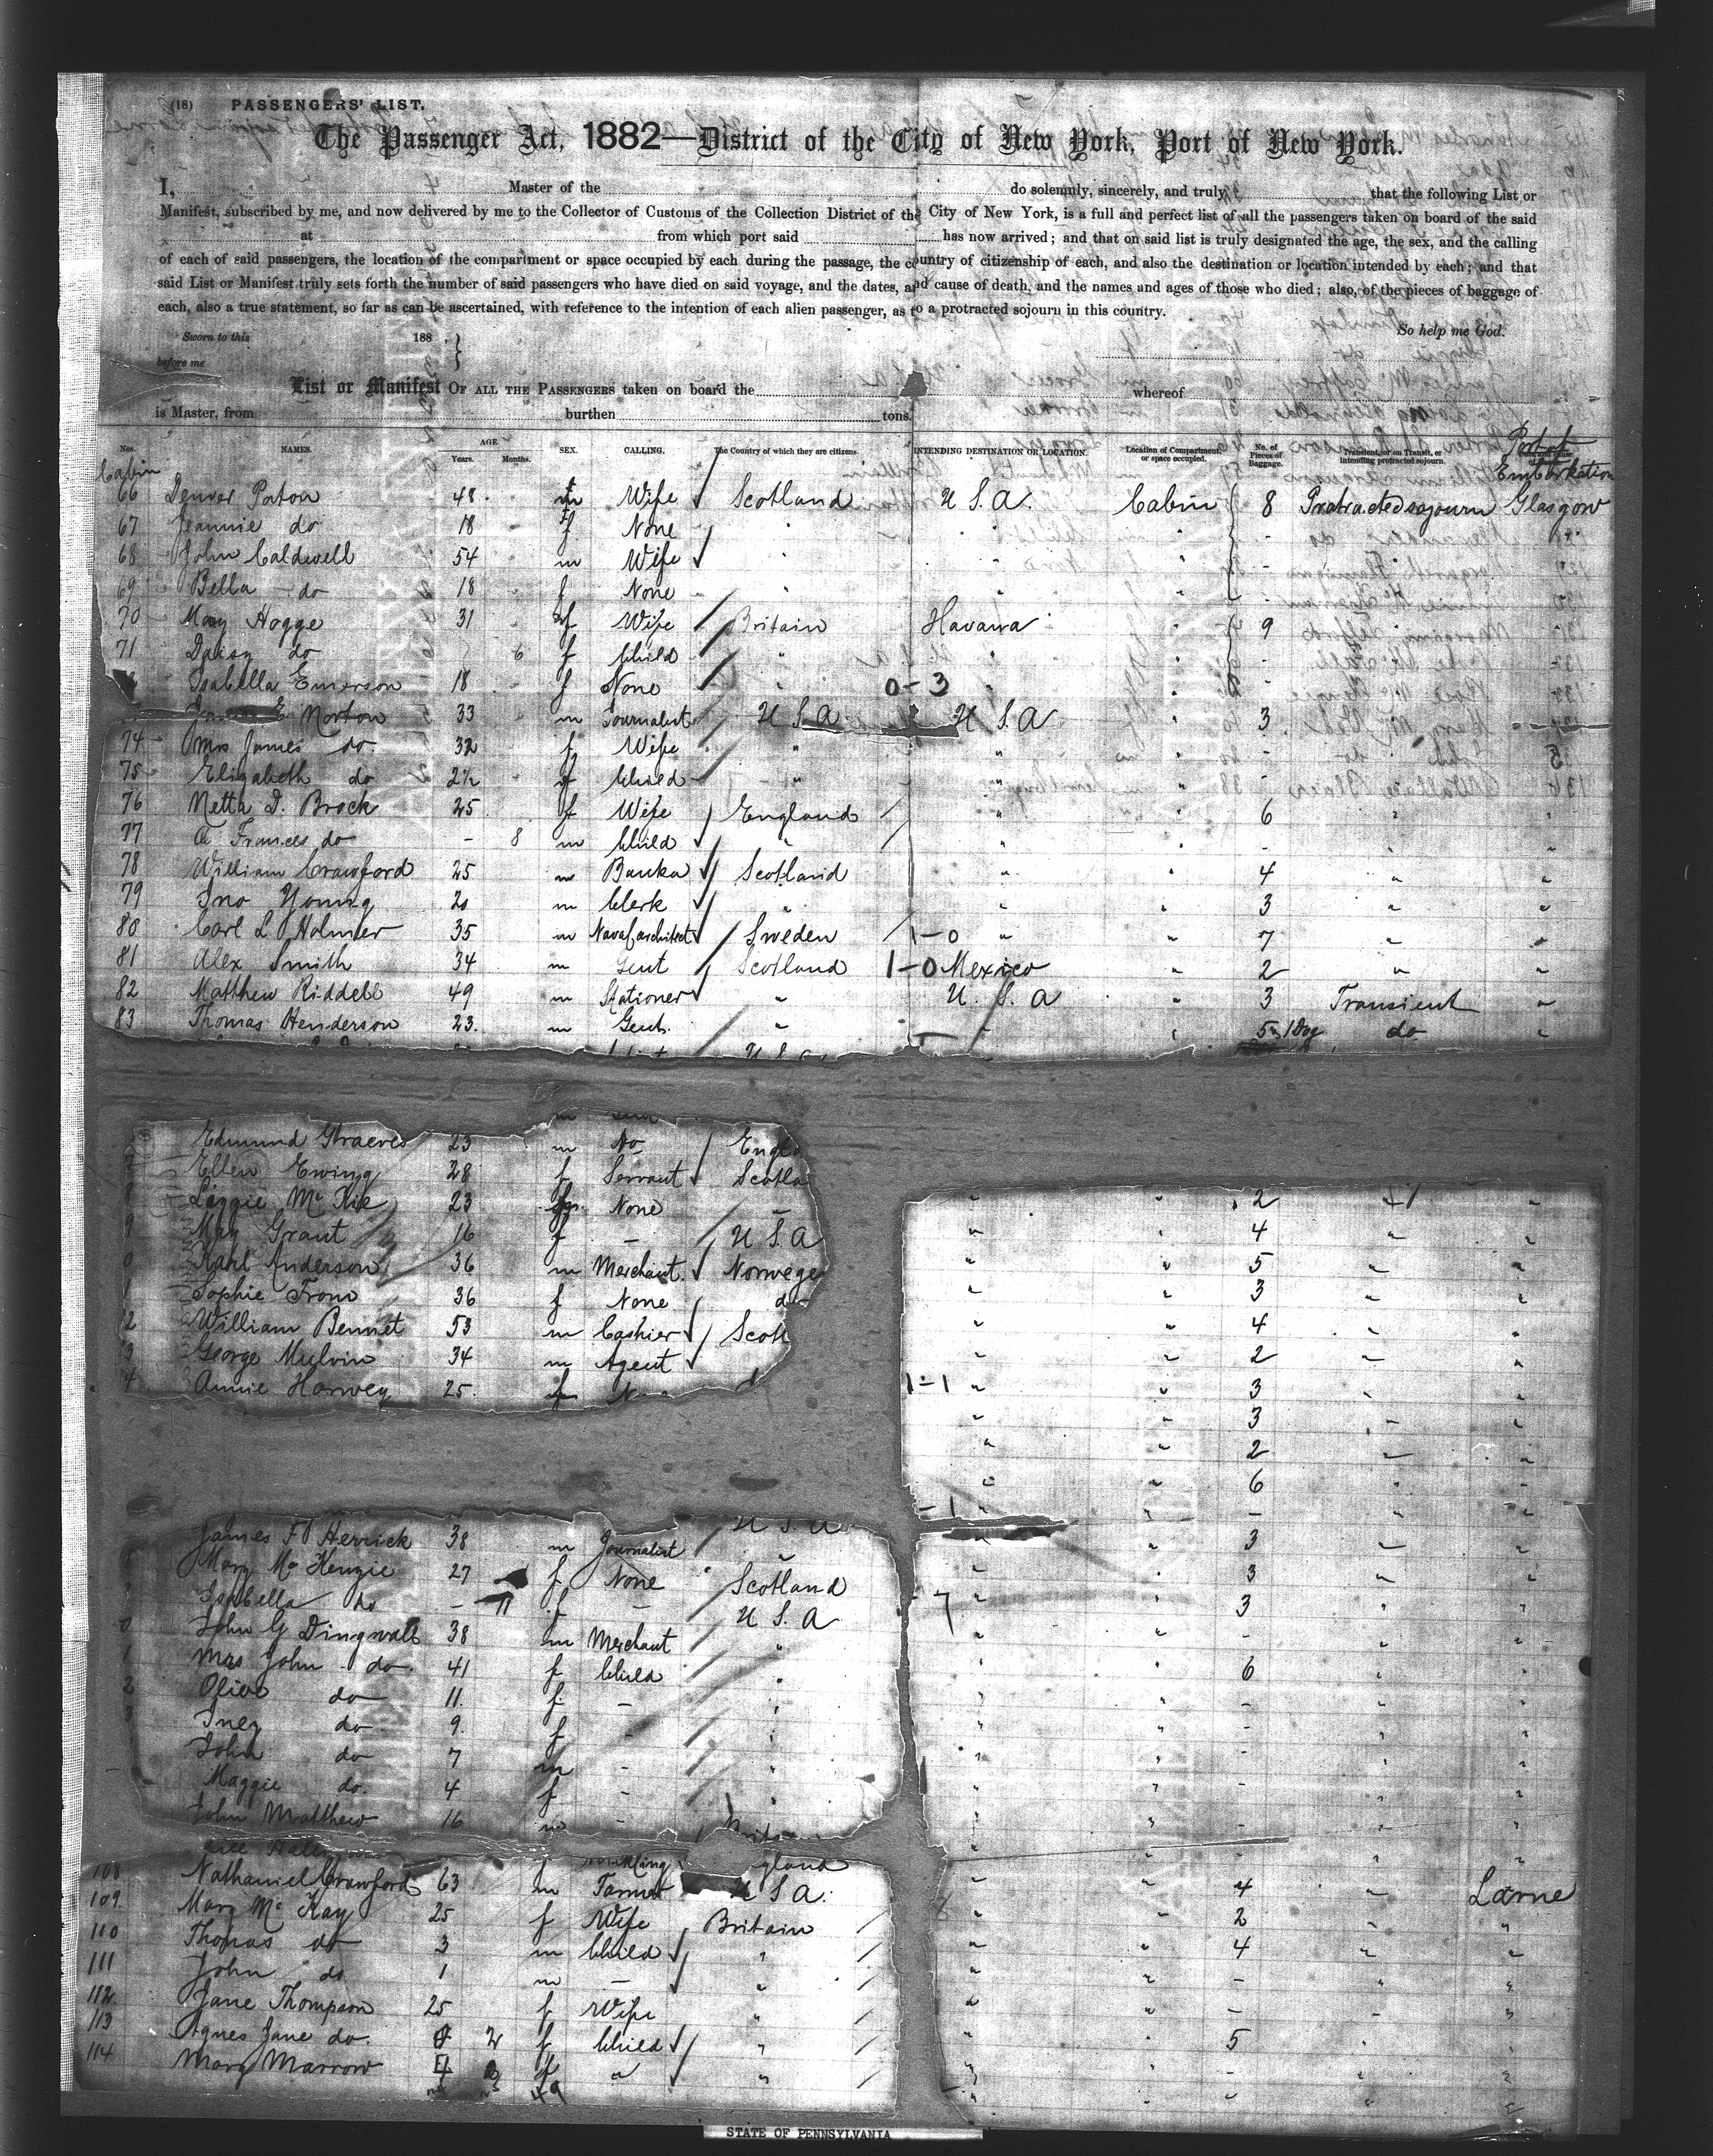 (18) PASSENGERS' LIST.
The Passenger Act, 1882—District of the City of New York, Port of New York.
I, Master of the do solemnly, sincerely, and truly that the following List or
Manifest, subscribed by me, and now delivered by me to the Collector of Customs of the Collection District of the City of New York, is a full and perfect list of all the passengers taken on board of the said
at from which port said has now arrived; and that on said list is truly designated the age, the sex, and the calling
of each of said passengers, the location of the compartment or space occupied by each during the passage, the country of citizenship of each, and also the destination or location intended by each; and that
said List or Manifest truly sets forth the number of said passengers who have died on said voyage, and the dates, and cause of death, and the names and ages of those who died; also, of the pieces of baggage of
each, also a true statement, so far as can be ascertained, with reference to the intention of each alien passenger, as to a protracted sojourn in this country.
Sworn to this 188 So help me God.
before me
List or Manifest OF ALL THE PASSENGERS taken on board the whereof
is Master, from burthen tons.
Nos. NAMES. AGE Years. Months. SEX. CALLING. The Country of which they are citizens. INTENDING DESTINATION OR LOCATION. Location of Compartment or space occupied. No. of Pieces of Baggage. Transient, or on Transit, or intending protracted sojourn. Port of Embarkation
Cabin
66 Denver Paton 48 Wife Scotland U.S.A. Cabin 8 Protracted sojourn Glasgow
67 Jeannie do 18 f None " "
68 John Caldwell 54 m Wife " "
69 Bella do 18 f None " "
70 Mary Hogge 31 f Wife Britain Havana 9
71 Daisy do 6 f Child " "
Isabella Emerson 18 f None " 0-3 "
E Norton 33 m Journalist U S A U S A 3
74 Mrs James do 32 f Wife " " -
75 Elizabeth do 2½ f Child " " -
76 Netta D. Brock 25 f Wife England " 6
77 A Frances do - 8 m Child " " -
78 William Crawford 25 m Banker Scotland " 4 " "
79 Jno Young 20 m Clerk " " 3 " "
80 Carl L Holmer 35 m Naval architect Sweden 1-0 " " 7 " "
81 Alex Smith 34 m Gent Scotland 1-0 Mexico " 2 " "
82 Matthew Riddell 49 m Stationer " U. S. A " 3 Transient "
83 Thomas Henderson 23. m Gent. " " 5 1 Dog do "
U S A
Edmund Graeves 23 m No Engl
Ellen Ewing 28 f Servant Scotla
8 Lizzie Mc Kie 23 None " 2 "
9 May Grant 16 f - U S A " 4 " "
0 Karl Anderson 36 m Merchant Norwege " 5 " "
1 Sophie From 36 f None do " 3 " "
2 William Bennet 53 m Cashier Scotl " 4 " "
3 George Mulvin 34 m Agent " 2 " "
4 Annie Harvey 25. f 1-1 " 3 " "
" 3 " "
" 2 " "
" 6 "
U S A -1 " - "
James F Herrick 38 m Journalist " 3 " "
Mary Mc Kenzie 27 f None Scotland " 3 " "
Isabella do - 11 f - U S A - 7 " 3 " "
0 John G Dingwall 38 m Merchant " " - " "
1 Mrs John do 41 f Child " " 6 " "
2 Olive do 11. f - " " - " "
3 Inez do 9. f - " " - " "
John do 7 m - " " - " "
Maggie do. 4 f - " " - " "
John Matthew 16 m
gland
108 Nathaniel Crawford 63 m Farmer U S A. " 4 " Larne
109 Mary Mc Kay 25 f Wife Britain " 2 " "
110 Thomas do 3 m Child " " 4 " "
111 John do 1 m - " " - " "
112 Jane Thompson 25 f Wife " " - " "
113 Agnes Jane do. 2 f Child " " 5 " "
114 Mary Marrow f " " " - " "
49
STATE OF PENNSYLVANIA